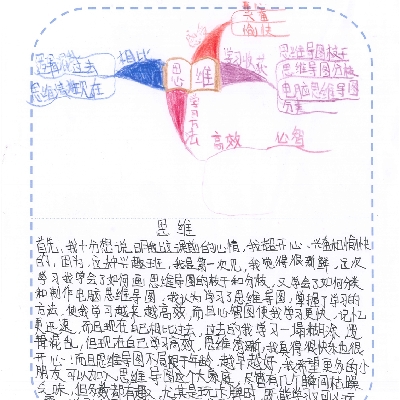 愉快
相比
过去
思维清晰现在
思维
学习收获
思维导图枝干
思维导图分枝
电脑思维导图
分类
学习方法
高效
必备
思维
首先,我十分想说明做这课的心情,我超开心、兴奋和愉快
的,因为,这种兴趣班,我是第一次见,我觉得很新鲜,这次
学习我学会了如何画思维导图的枝干和分枝,又学会了如何分类
和制作电脑思维导图。我认为学习了思维导图,掌握了学习的
方法,使我学习越来越高效,而且心智图使我学习更快,记忆
更迅速,而且现在已相比过去,过去的我学习一塌糊涂,愚
昧混包,但现在自己学习高效,思维清晰,我真得很快乐也很
开心;而且思维导图不局限于年龄,越早越好,我希望更多的小
朋友可以加入思维导图这个大家庭,尽管有几个瞬间枯燥